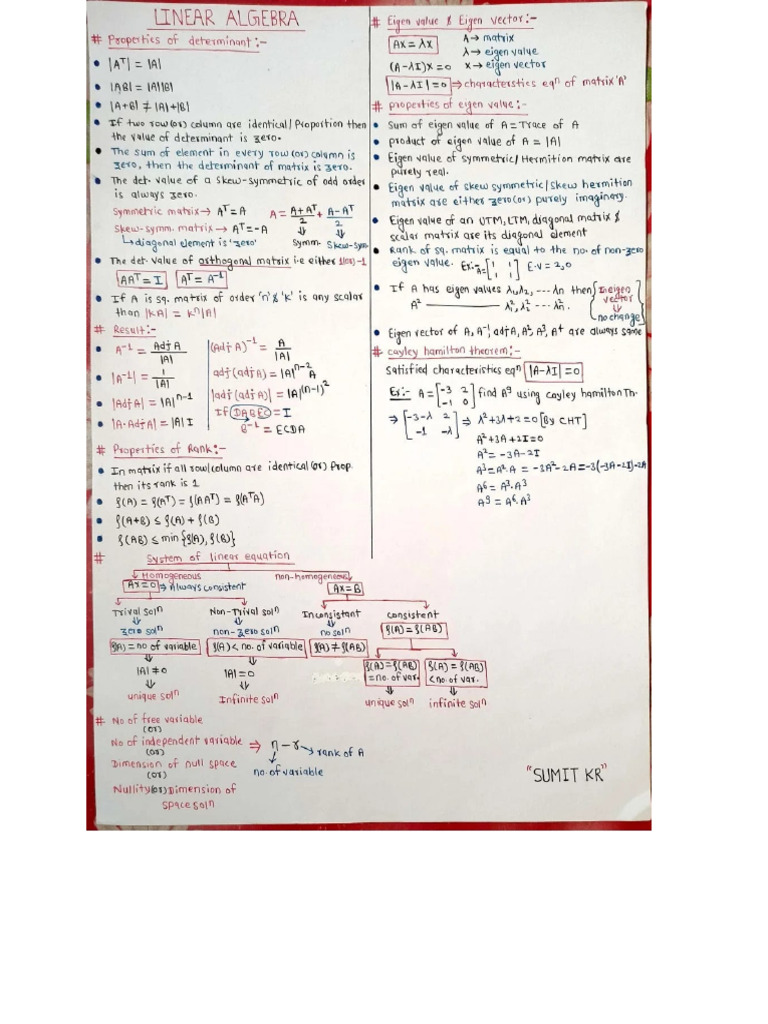 LINEAR ALGEBRA
# Properties of determinant:-
• |Aᵀ| = |A|
• |AB| = |A||B|
• |A+B| ≠ |A|+|B|
• If two row(or) column are identical/Proportion then
the value of determinant is zero.
• The sum of element in every row(or) column is
zero, then the determinant of matrix is zero.
• The det. value of a skew-symmetric of odd order
is always zero.
Symmetric matrix → Aᵀ=A A = (A+Aᵀ)/2 + (A-Aᵀ)/2
Skew-symm. matrix → Aᵀ=-A ⇓ Symm. ⇓ Skew-sym.
↳diagonal element is 'zero'
• The det. value of orthogonal matrix i.e either 1(or)-1
AAᵀ = I Aᵀ = A⁻¹
• If A is sq. matrix of order 'n' & 'K' is any scalar
than |KA| = Kⁿ|A|
# Result:-
• A⁻¹ = Adj A/|A| (Adj A)⁻¹ = A/|A|
• |A⁻¹| = 1/|A| adj(adj A) = |A|ⁿ⁻² A
• |Adj A| = |A|ⁿ⁻¹ |adj(adj A)| = |A|^(n-1)²
• |A·Adj A| = |A| I If DABEC = I
B⁻¹ = ECDA
# Properties of Rank:-
• In matrix if all row/column are identical (or) Prop.
then its rank is 1
• ρ(A) = ρ(Aᵀ) = ρ(AAᵀ) = ρ(AᵀA)
• ρ(A+B) ≤ ρ(A) + ρ(B)
• ρ(AB) ≤ min{ρ(A), ρ(B)}
# Eigen value & Eigen vector:-
AX = λX A→ matrix
λ→ eigen value
(A-λI)X = 0 X→ eigen vector
|A-λI| = 0 ⇒ characterstics eqⁿ of matrix 'A'
# properties of eigen value:-
• Sum of eigen value of A = Trace of A
• product of eigen value of A = |A|
• Eigen value of symmetric/Hermition matrix are
purely real.
• Eigen value of skew symmetric/skew hermition
matrix are either zero(or) purely imaginary.
• Eigen value of an UTM, LTM, diagonal matrix &
scalar matrix are its diagonal element
• Rank of sq. matrix is equal to the no. of non-zero
eigen value. Ex:- A = [1 1; 1 1] E.v = 2,0
• If A has eigen values λ₁,λ₂, ---- λn then In eigen vector
A² ——— λ₁², λ₂² ---- λn². ⇓ no change
• Eigen vector of A, A⁻¹, adj A, A², A³, A⁴ are always same
# cayley hamilton theorem:-
Satisfied characteristics eqⁿ |A-λI| = 0
Ex:- A = [-3 2; -1 0] find A⁹ using cayley hamilton Th.
⇒ [-3-λ 2; -1 -λ] ⇒ λ²+3λ+2=0 [By CHT]
A²+3A+2I=0
A² = -3A-2I
A³=A²·A = -3A²-2A=-3(-3A-2I)-2A
A⁶ = A³·A³
A⁹ = A⁶·A³
# System of linear equation
Homogeneous non-homogeneous
AX=0 ⇒ Always consistent AX=B
Trival solⁿ Non-Trival solⁿ Inconsistant consistent
zero solⁿ non-zero solⁿ no solⁿ ρ(A) = ρ(AB)
ρ(A) = no of variable ρ(A) < no. of variable ρ(A) ≠ ρ(AB)
|A| ≠ 0 |A| = 0 ρ(A) = ρ(AB) = no. of var. ρ(A) = ρ(AB) < no. of var.
unique solⁿ Infinite solⁿ unique solⁿ infinite solⁿ
# No of free variable
(or)
No of independent variable ⇒ n - r → rank of A
(or)
Dimension of null space no. of variable
(or)
Nullity(or) Dimension of
space solⁿ
"SUMIT KR"